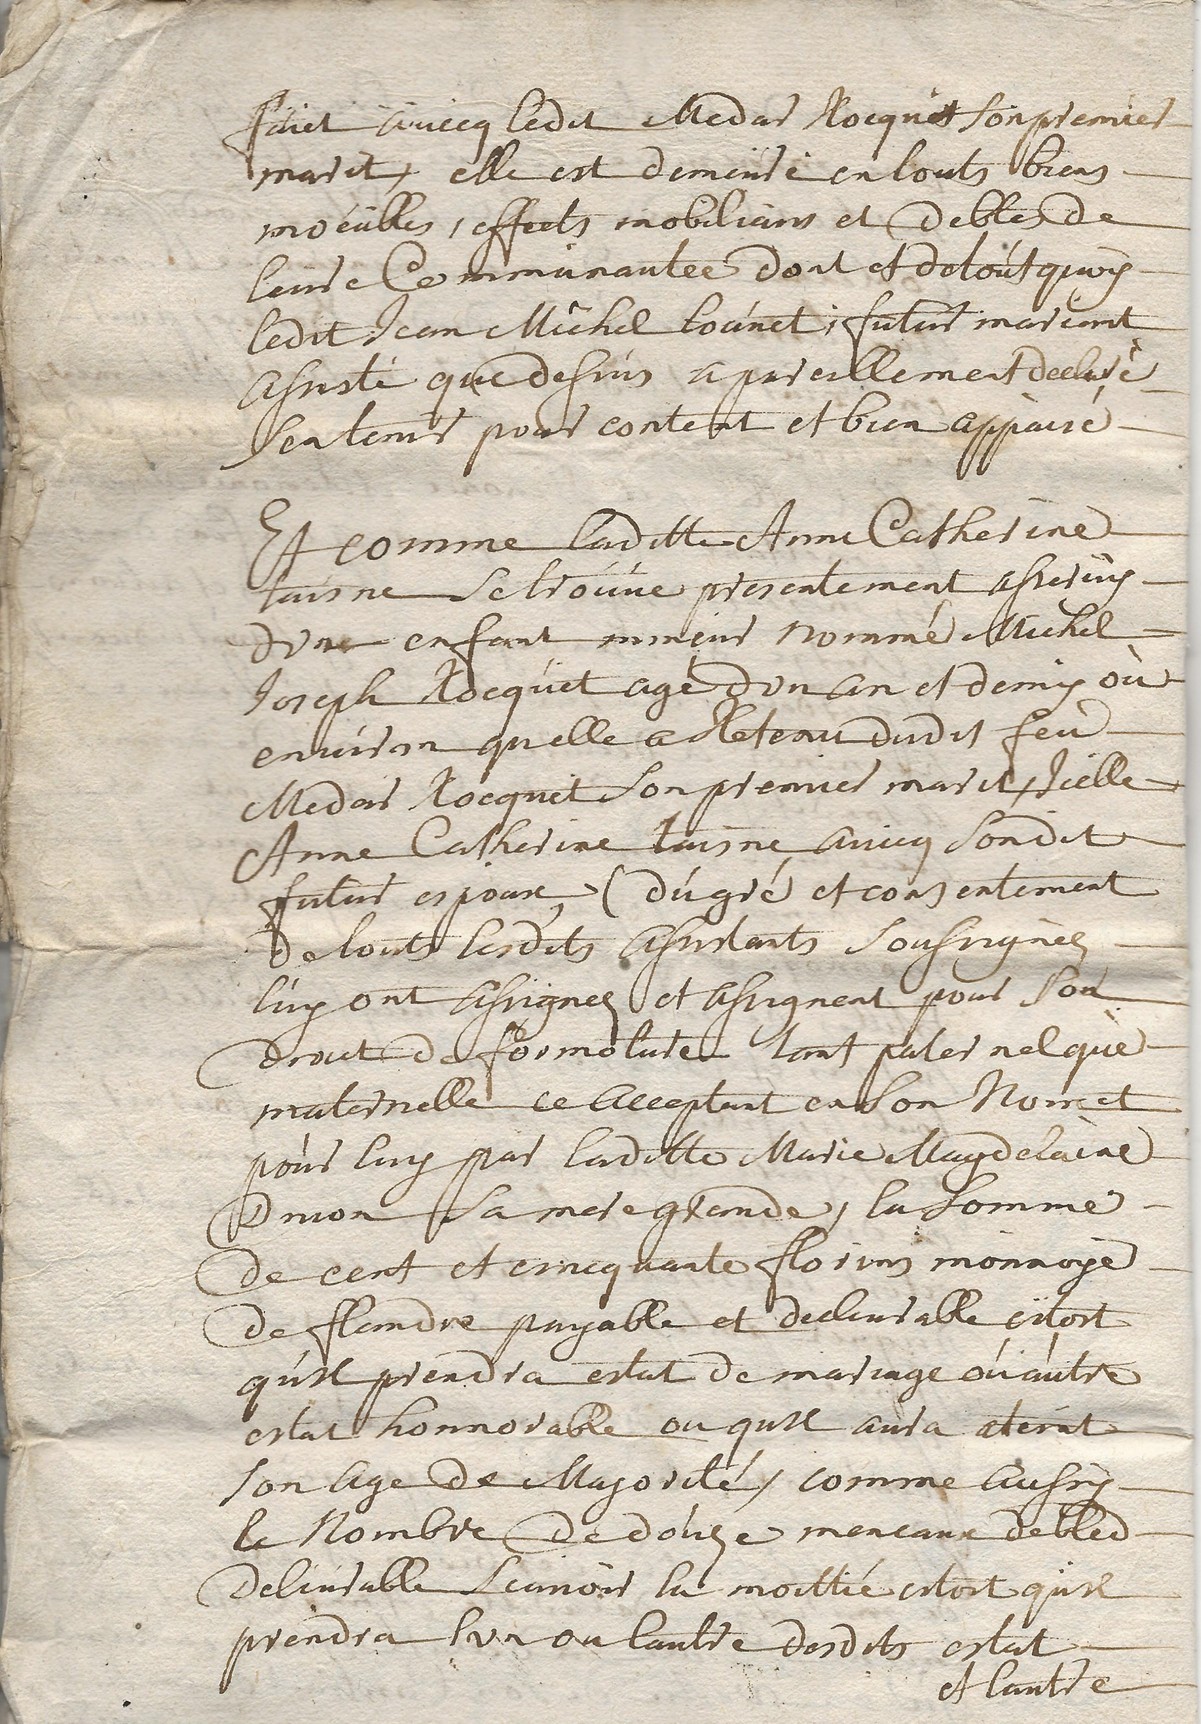 faict avecq ledit Medar Rocquet son premier
marit, elle est demeuré en touts biens
moeubles, effects mobiliairs et debtes de
leure Communautee dont et detout quoy
ledit Jean Michel Counet, futur mariant
assisté que dessus a pareillement declaré
sentenir pour content et bien appaisé
Et comme laditte Anne Catherine
taisne se trouve presentement
d'vne enfant mineur nommé Michel
Joseph Rocquet agé d'vn an et demÿ où
environ quelle a Retenu dudit feu
Medar Rocquet son premier marit, Jcelle
Anne Catherine taisne avecq sondit
futur espoux, (du gré et consentement
de touts lesdits assistants soussignés
luy ont assignés et assignent pour son
droit de formoture tant paternel que
maternelle ce acceptant en son Nom et
pour luy par laditte Marie Magdelaine
sa mere grande, la somme
de cent et cincquante florins monnoye
de flandre payable et delivrable sitost
qu'il prendra estat de mariage ou autre
estat honnorable ou quil aura ateint
son age de Majorité, comme aussy
le Nombre de douze mencaux de bled
delivrable scavoir la moittié sitost qu'il
prendra l'vn ou lautre desdits estat
et lautre